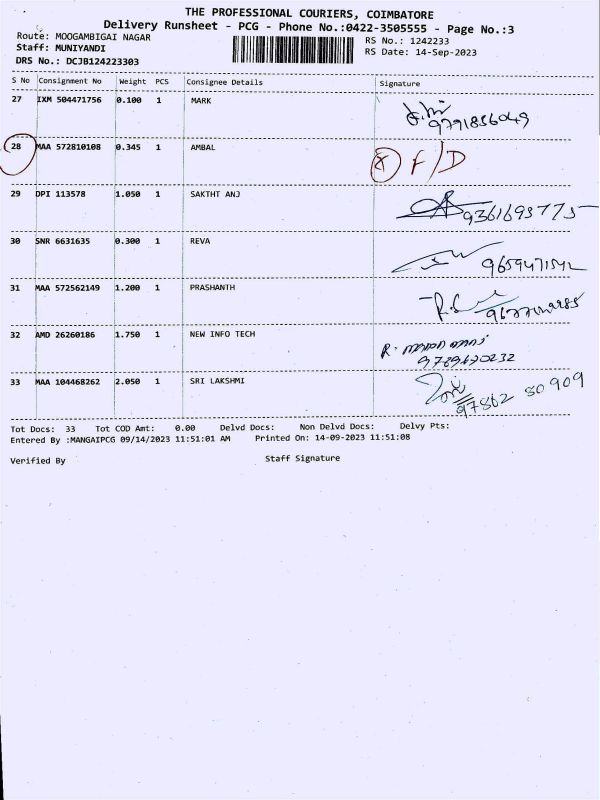 THE PROFESSIONAL COURIERS, COIMBATORE
Delivery Runsheet - PCG - Phone No.:0422-3505555 - Page No.:3
Route: MOOGAMBIGAI NAGAR
RS No.: 1242233
Staff: MUNIYANDI
RS Date: 14-Sep-2023
DRS No.: DCJB124223303
S No Consignment No Weight PCS Consignee Details Signature
27 IXM 504471756 0.100 1 MARK
9791856049
28 MAA 572810108 0.345 1 AMBAL X F/D
29 DPI 113578 1.050 1 SAKTHT ANJ
9361693775
30 SNR 6631635 0.300 1 REVA
9659471542
31 MAA 572562149 1.200 1 PRASHANTH
32 AMD 26260186 1.750 1 NEW INFO TECH
R.
33 MAA 104468262 2.050 1 SRI LAKSHMI
97862 50909
Tot Docs: 33 Tot COD Amt: 0.00 Delvd Docs: Non Delvd Docs: Delvy Pts:
Entered By :MANGAIPCG 09/14/2023 11:51:01 AM Printed On: 14-09-2023 11:51:08
Verified By Staff Signature